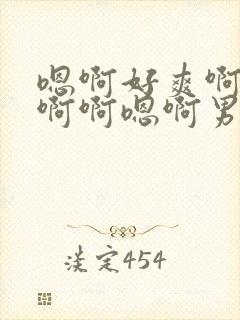 嗯啊好爽啊
啊啊嗯啊男
淡定454